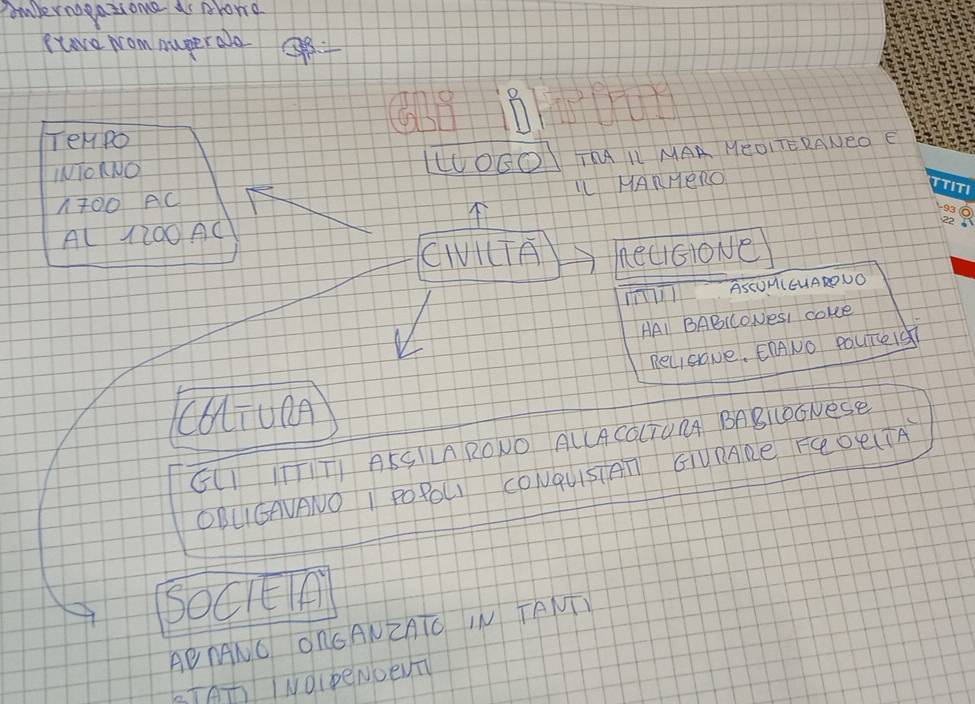 Internogazione di storia
Prova nom superata
Gli ittiti
TEMPO
INTORNO
1700 AC
AL 1200 AC
LUOGO TRA IL MAR MEDITERANEO E
IL MARMERO
CIVILTÀ
RELIGIONE
ITTITI ASSUMIGLIARONO
HAI BABILONESI COME
RELIGONE. ERANO POLITEISTI
COLTURA
GLI ITTITI ASSILARONO ALLA COLTURA BABILOGNESE
OBLIGAVANO I POPOLI CONQUISTATI GIURARE FEDELTÀ
SOCIETÀ
ORGANZATO IN TANTI
STATI INDIPENDENTI
TTITI
-93
22